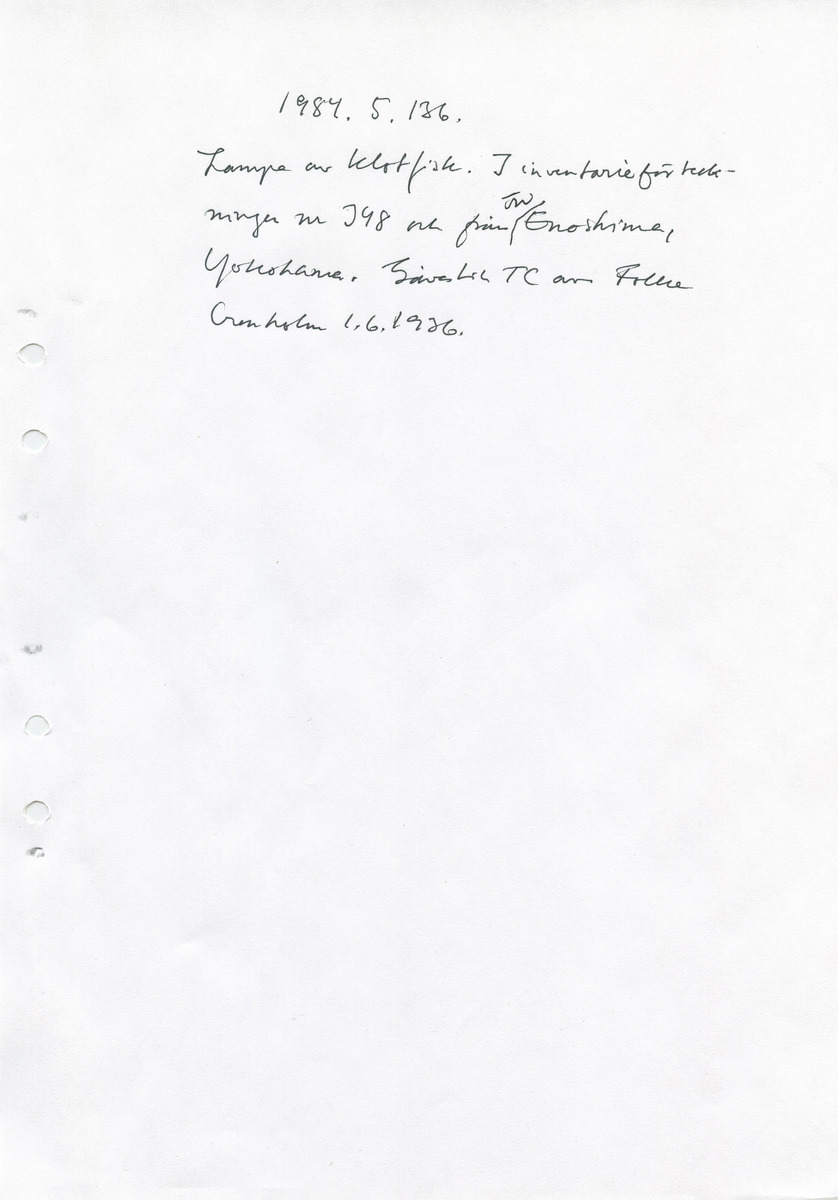 1984. 5. 136.
Lampa av klotfisk. I inventarieförteck-
ningen nr J48 och från ön Enoshima,
Yokohama. TC av Folke
Cronholm 1.6.1926.